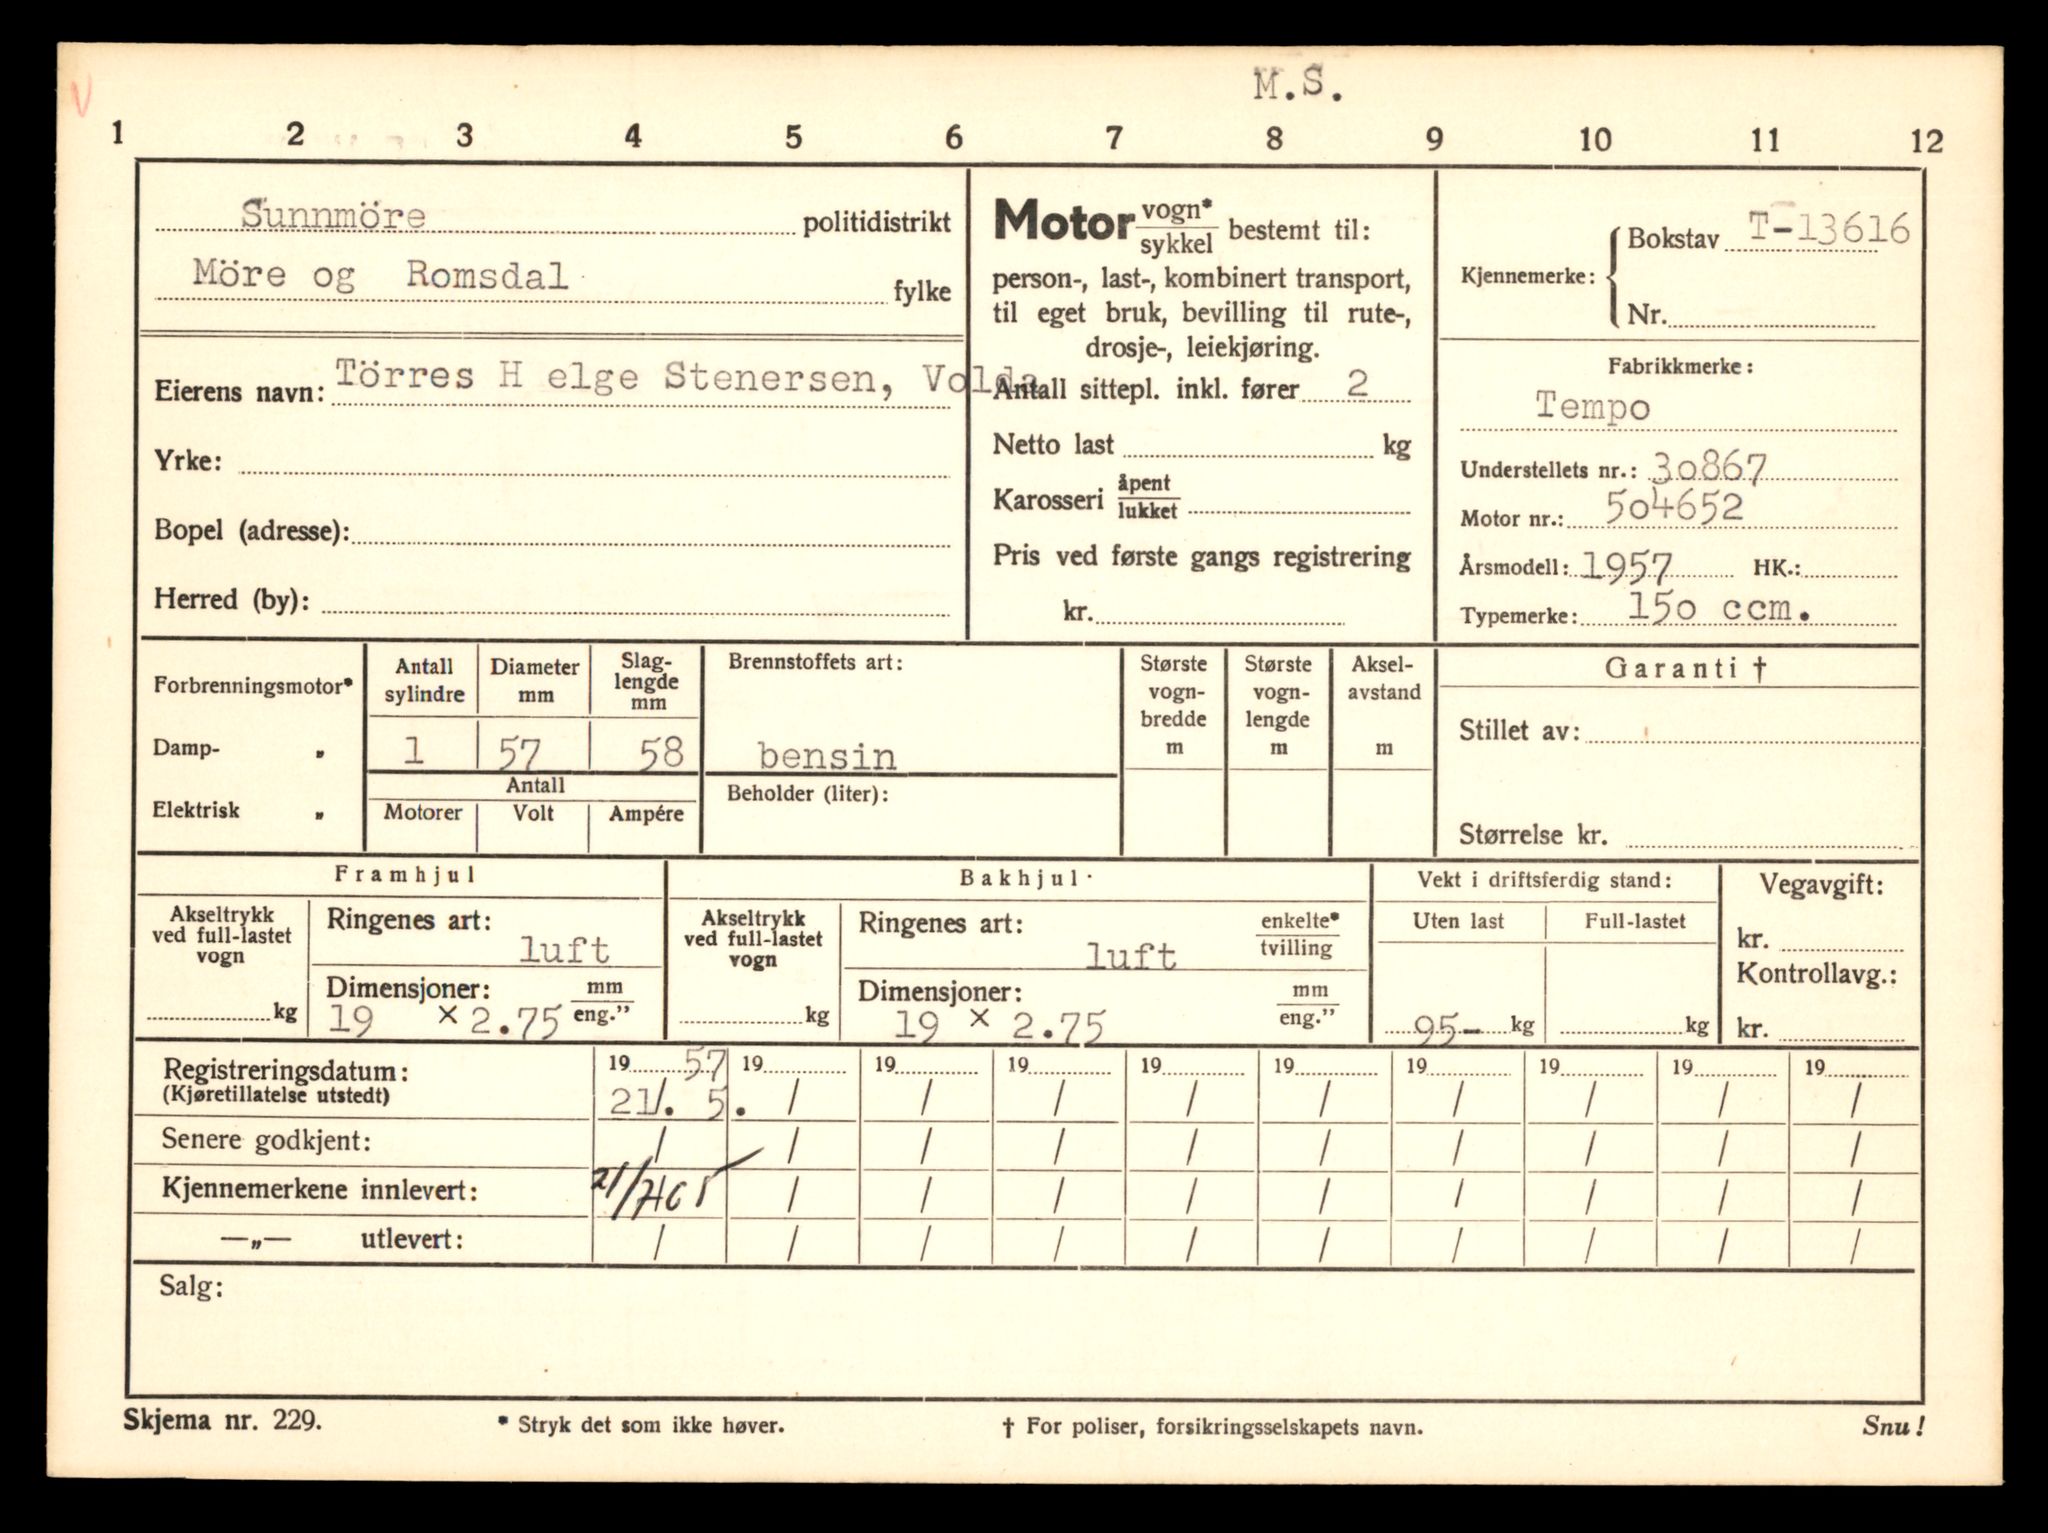 V
M.S.
1 2 3 4 5 6 7 8 9 10 11 12
Sunnmöre politidistrikt
Möre og Romsdal fylke
Eierens navn: Törres H elge Stenersen, Volda
Yrke:
Bopel (adresse):
Herred (by):
Motor vogn* sykkel bestemt til:
person-, last-, kombinert transport,
til eget bruk, bevilling til rute-,
drosje-, leiekjøring.
Antall sittepl. inkl. fører 2
Netto last kg
Karosseri åpent lukket
Pris ved første gangs registrering
kr.
Kjennemerke: Bokstav T-13616
Nr.
Fabrikkmerke:
Tempo
Understellets nr.: 30867
Motor nr.: 504652
Årsmodell: 1957 HK.:
Typemerke: 150 ccm.
Forbrenningsmotor*
Damp- „
Elektrisk „
Antall sylindre
1
Diameter mm
57
Slag-lengde mm
58
Antall
Motorer Volt Ampére
Brennstoffets art:
bensin
Beholder (liter):
Største vogn-bredde m
Største vogn-lengde m
Aksel-avstand m
Garanti †
Stillet av:
Størrelse kr.
Framhjul
Akseltrykk ved full-lastet vogn
kg
Ringenes art:
luft
Dimensjoner: mm eng."
19 × 2.75
Bakhjul
Akseltrykk ved full-lastet vogn
kg
Ringenes art: enkelte* tvilling
luft
Dimensjoner: mm eng."
19 × 2.75
Vekt i driftsferdig stand:
Uten last Full-lastet
95- kg kg
Vegavgift:
kr.
Kontrollavg.:
kr.
Registreringsdatum: 19 57 19 19 19 19 19 19 19 19 19
(Kjøretillatelse utstedt) 21/. 5. / / / / / / / / /
Senere godkjent: / / / / / / / / / /
Kjennemerkene innlevert: 21/7 65 / / / / / / / / /
—„— utlevert: / / / / / / / / / /
Salg:
Skjema nr. 229. * Stryk det som ikke høver. † For poliser, forsikringsselskapets navn. Snu!